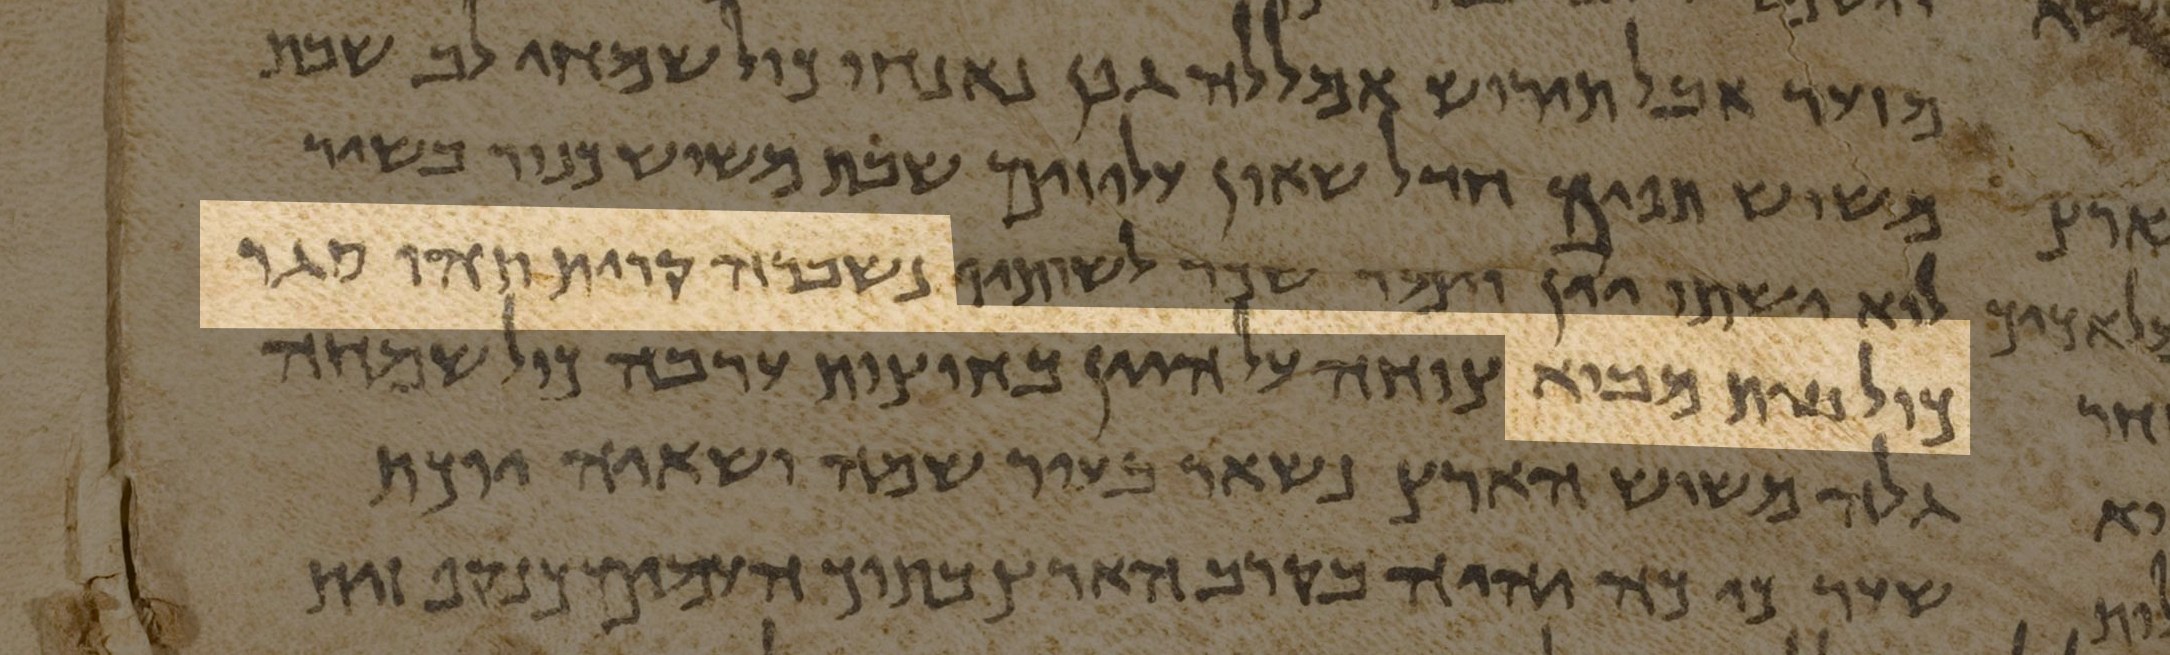 מזער אבל תירוש אמללה גפן נאנחו כול שמחי לב שבת
משוש תפים חדל שאון עליזים שבת משוש כנור בשיר
לוא ישתו יין וימר שכר לשותיו נשברה קרית תהו סגר
כול בית מבוא צוחה על היין בחוצות ערבה כול שמחה
גלה משוש הארץ נשאר בעיר שמה ושאיה יוכת
שער כי כה יהיה בקרב הארץ בתוך העמים כנקף זית